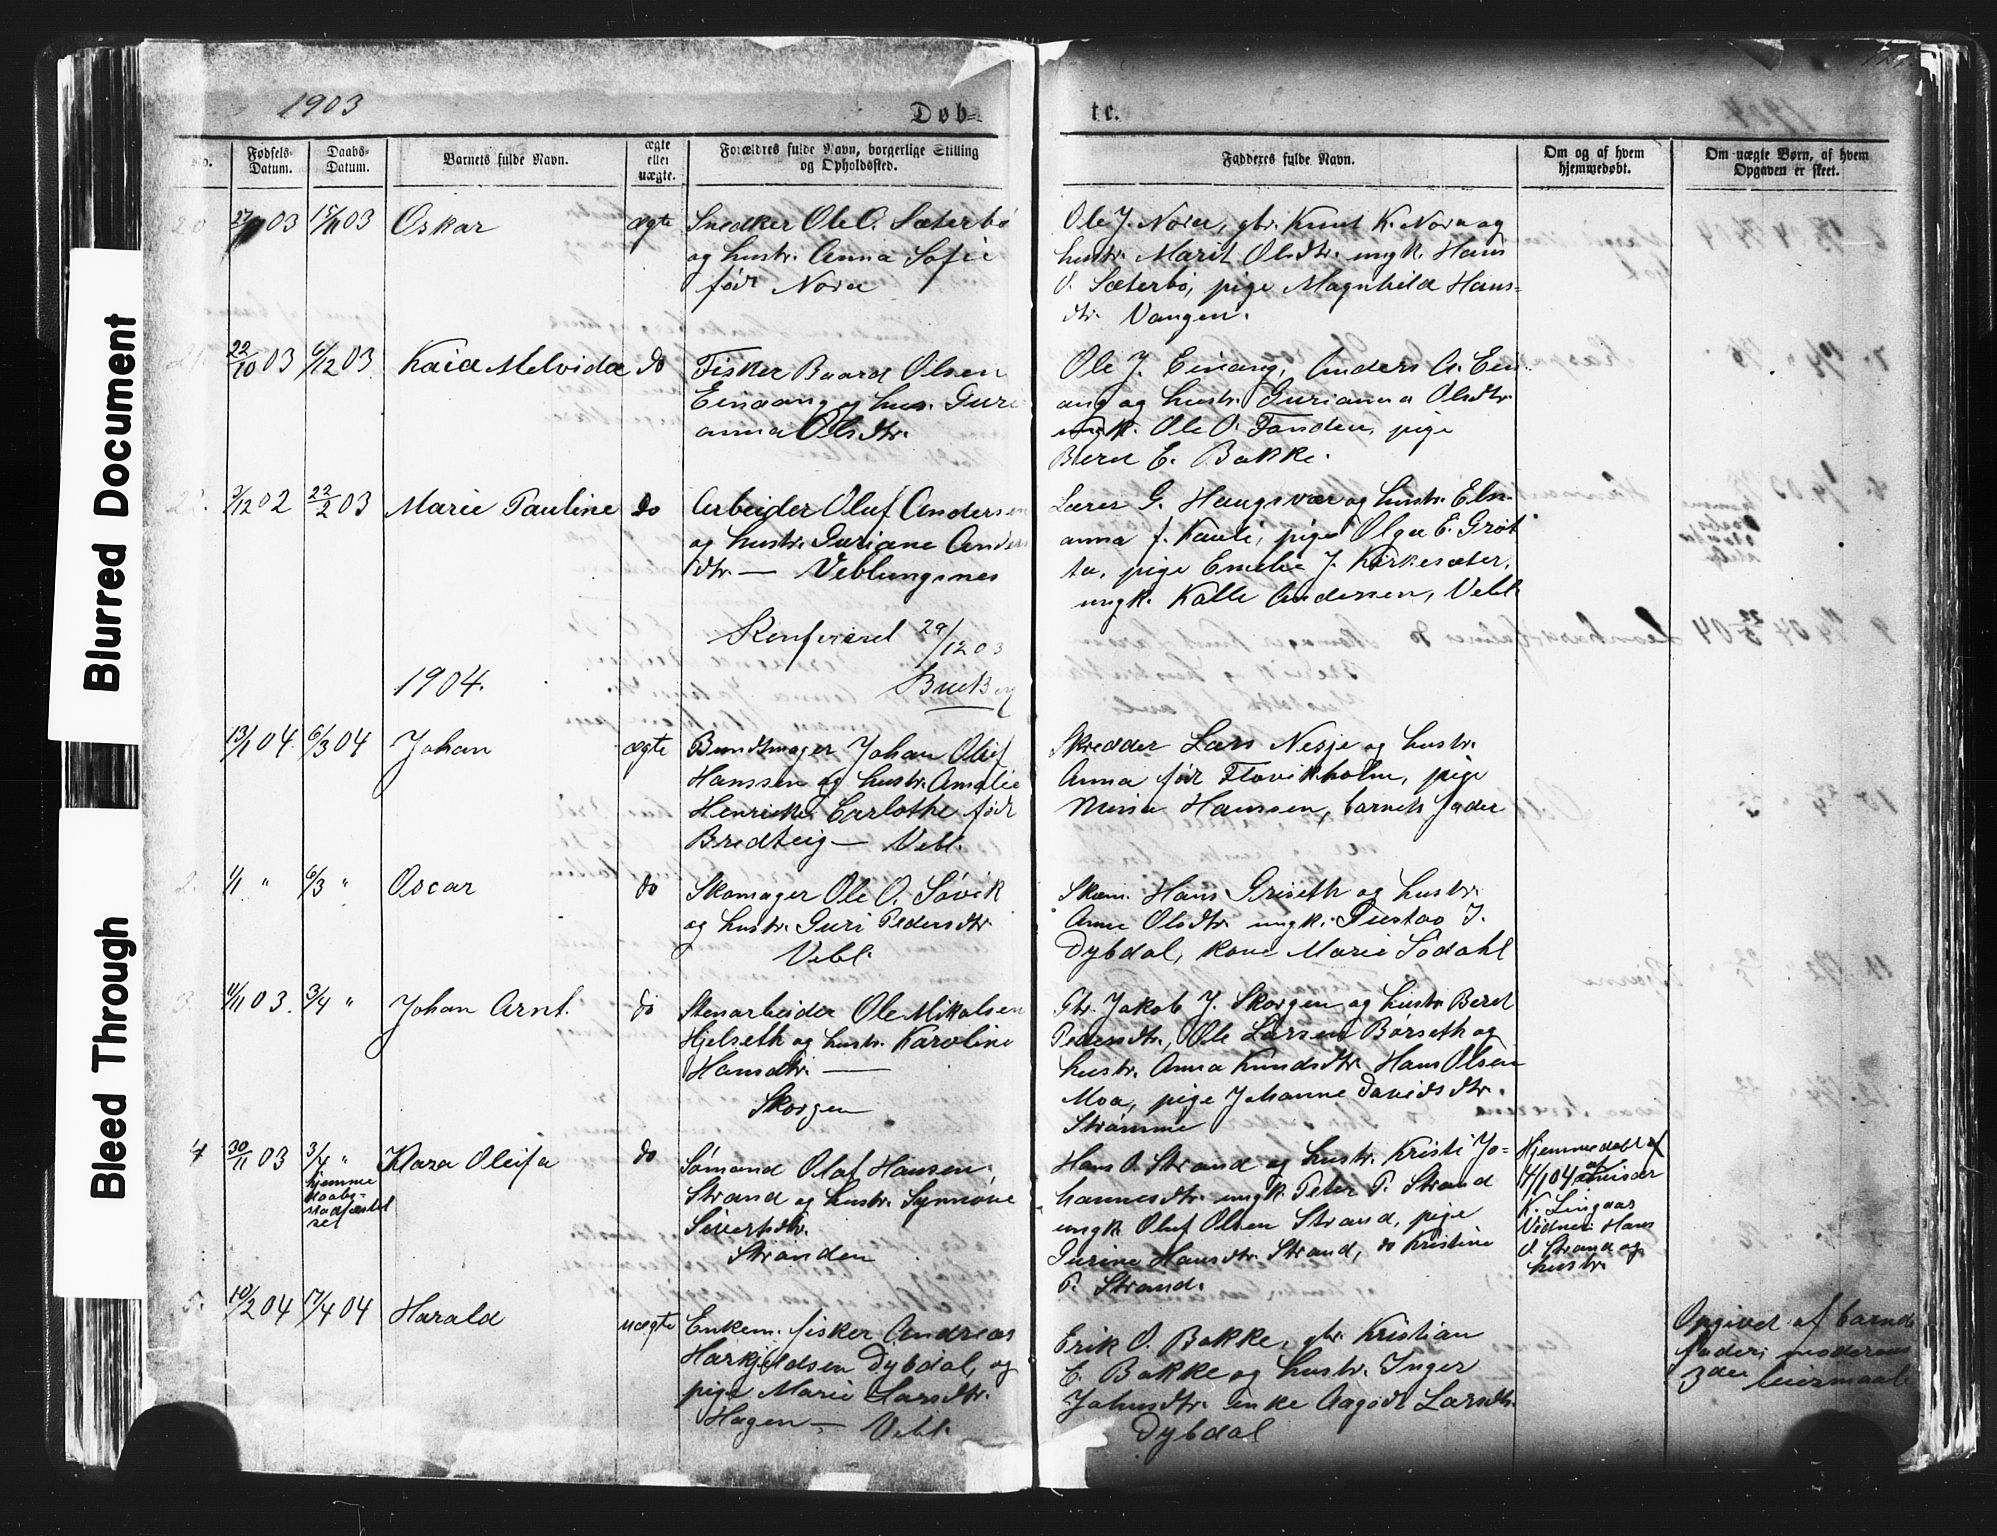 Blurred Document
Bleed Through
1903
Døb-
te.
No.
Fødsels-
Datum.
Daabs-
Datum.
Barnets fulde Navn.
ægte
eller
uægte.
Forældres fulde Navn, borgerlige Stilling
og Opholdssted.
Fadderes fulde Navn.
Om og af hvem
hjemmedøbt.
Om uægte Børn, af hvem
Opgaven er skeet.
20 03 15/11 03 Oskar ægte Snedker Ole O. Sæterbø
og hustr. Anna Sofie
født Nora
Ole J. Nora, gbr. Knut K. Nora og
hustr. Marit Olsdtr. ungk. Hans
O. Sæterbø, pige Magnhild Hans-
dtr. Vangen.
21. 22/10 03 6/12 03 Kaia Melvida do Fisker Baard Olsen
Einaang og hus. Guri-
anna Olsdtr.
Ole J. Einang, Anders A. Ein-
ang og hustr. Gurianna Olsdtr.
ungk. Ole O. Tanden, pige
Berit E. Bakke.
22. 3/12 02 22/2 03 Marie Pauline do Arbeider Oluf Andersen
og hustr. Guriane Anders
dtr. — Veblungsnes
Lærer G. Haugsvær og hustr. Eln-
anna f. Kauli, pige Olga E. Grøt
ta, pige Emelie J. Kirkesæter,
ungk. Kalle Andersen, Vebl.
Konfereret 29/12 03
1904.
1. 13/1 04. 6/3 04 Johan ægte Bundtmager Johan Oluf
Hanssen og hustr. Amalie
Henrikke Carlothe født
Bredteig — Vebl.
Skredder Lars Nesje og hustr.
Anna født Flovikholm, pige
Mina Hanssen, barnets fader
2. 1/1 " 6/3 " Oscar do Skomager Ole O. Søvik
og hustr. Guri Pedersdtr.
Vebl.
Skom. Hans Griseth og hustr.
Anne Olsdtr. ungk. Gustav J.
Dybdal, kone Marie Sødahl
3. 11/11 03. 3/4 " Johan Arnt. do Stenarbeider Ole Mikalsen
Hjelseth og hustr. Karoline
Hansdtr. —
Skorgen
Gbr. Jakob J. Skorgen og hustr. Beret
Pedersdtr., Ole Larsen Børseth og
hustr. Anna Knudsdtr. Hans Olsen
Moa, pige Johanne Davidsdtr.
Strømme
4 30/11 03 3/4 " Klara Oleifa do Sømand Olaf Hansen
Strand og hustr. Synnøve
Sivertsdtr.
Stranden
hjemme
daabs-
stadfæstel
set
Hans O. Strand og hustr. Kristi Jo-
hannesdtr. ungk. Peter P. Strand
ungk. Oluf Olsen Strand, pige
Gurine Hansdtr. Strand, do Kristine
P. Strand.
Hjemmedøbt
4/1 04 af
K. Lingaas
Vidner: Hans
O. Strand og
hustr.
5. 10/2 04 17/4 04 Harald uægte Enkem. fisker Andreas
Harkjeldsen Dybdal, og
pige Marie Larsdtr.
Hagen — Vebl.
Erik O. Bakke, gbr. Kristian
E. Bakke og hustr. Inger
Johnsdtr. enke Aagodt Larsdtr.
Dybdal
Opgivet af barnets
fader; moderens
3die leiermaal.